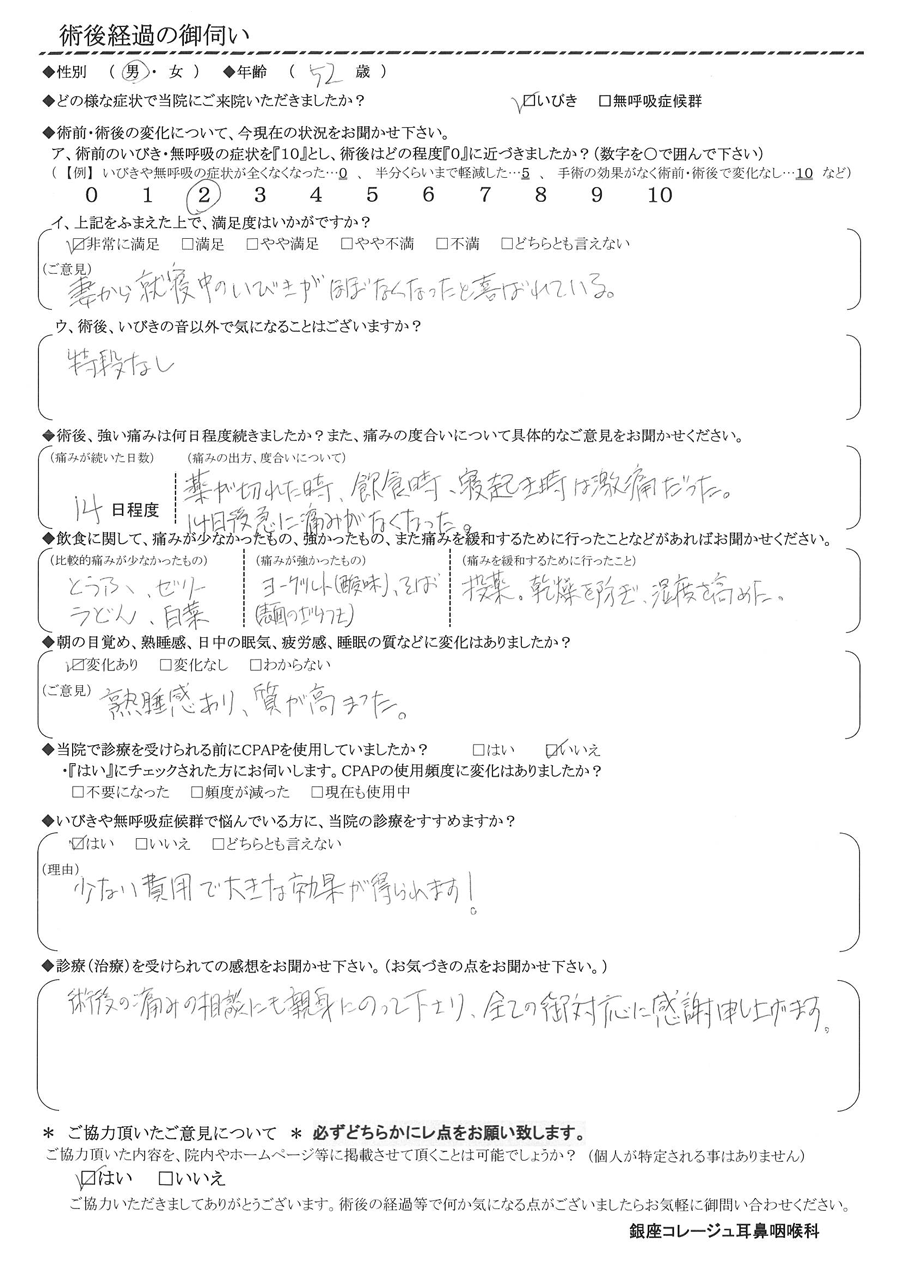 術後経過の御伺い
◆性別 ( 男・ 女 ) ◆年齢 ( 52 歳 )
◆どの様な症状で当院にご来院いただきましたか？ ☑いびき □無呼吸症候群
◆術前・術後の変化について、今現在の状況をお聞かせ下さい。
ア、術前のいびき・無呼吸の症状を『10』とし、術後はどの程度『0』に近づきましたか？（数字を○で囲んで下さい）
（【例】 いびきや無呼吸の症状が全くなくなった…0 、 半分くらいまで軽減した…5 、 手術の効果がなく術前・術後で変化なし…10 など）
0 1 2 3 4 5 6 7 8 9 10
イ、上記をふまえた上で、満足度はいかがですか？
☑非常に満足 □満足 □やや満足 □やや不満 □不満 □どちらとも言えない
(ご意見)
妻から就寝中のいびきがほぼなくなったと喜ばれている。
ウ、術後、いびきの音以外で気になることはございますか？
特段なし
◆術後、強い痛みは何日程度続きましたか？また、痛みの度合いについて具体的なご意見をお聞かせください。
(痛みが続いた日数) (痛みの出方、度合いについて)
薬が切れた時、飲食時、寝起き時は激痛だった。
14 日程度
14日後急に痛みがなくなった。
◆飲食に関して、痛みが少なかったもの、強かったもの、また痛みを緩和するために行ったことなどがあればお聞かせください。
(比較的痛みが少なかったもの) (痛みが強かったもの) (痛みを緩和するために行ったこと)
とうふ、ゼリー ヨーグルト(酸味)、そば 投薬。乾燥を防ぎ、湿度を高めた。
うどん、白菜 (表面のザラつき)
◆朝の目覚め、熟睡感、日中の眠気、疲労感、睡眠の質などに変化はありましたか？
☑変化あり □変化なし □わからない
(ご意見)
熟睡感あり、質が高まった。
◆当院で診療を受けられる前にCPAPを使用していましたか？ □はい ☑いいえ
・『はい』にチェックされた方にお伺いします。CPAPの使用頻度に変化はありましたか？
□不要になった □頻度が減った □現在も使用中
◆いびきや無呼吸症候群で悩んでいる方に、当院の診療をすすめますか？
☑はい □いいえ □どちらとも言えない
(理由)
少ない費用で大きな効果が得られます！
◆診療（治療）を受けられての感想をお聞かせ下さい。（お気づきの点をお聞かせ下さい。）
術後の痛みの相談にも親身にのって下さり、全ての御対応に感謝申し上げます。
＊ ご協力頂いたご意見について ＊ 必ずどちらかにレ点をお願い致します。
ご協力頂いた内容を、院内やホームページ等に掲載させて頂くことは可能でしょうか？ （個人が特定される事はありません）
☑はい □いいえ
ご協力いただきましてありがとうございます。術後の経過等で何か気になる点がございましたらお気軽に御問い合わせください。
銀座コレージュ耳鼻咽喉科